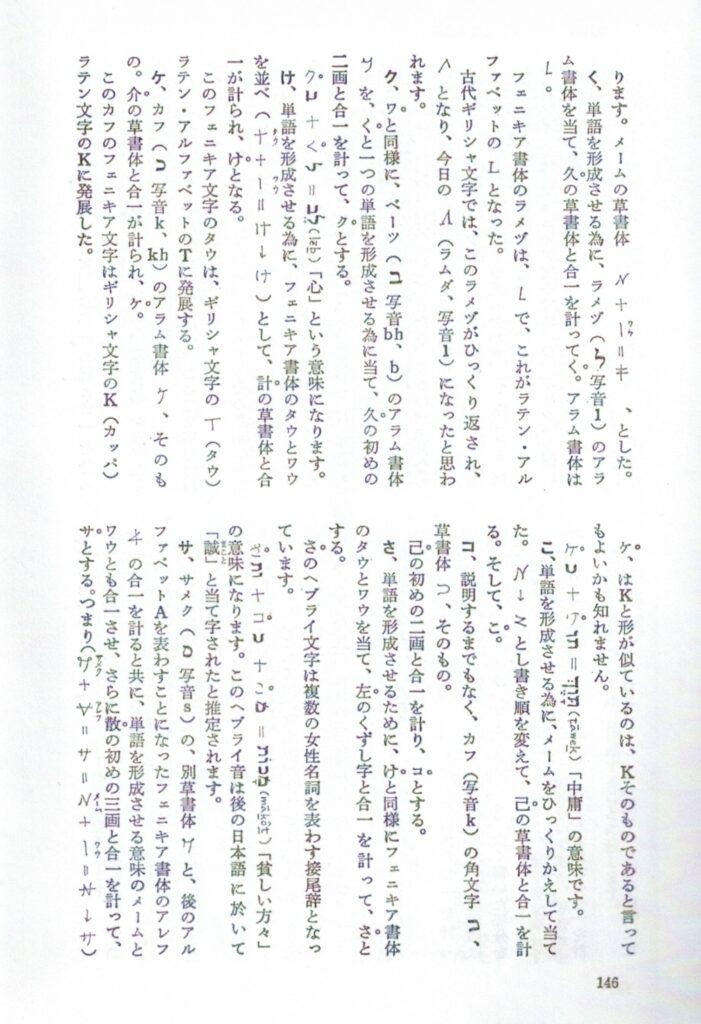 ります。メームの草書体 N + 丨 = キ 、とした。
く、単語を形成させる為に、ラメヅ(ל 写音l)のアラ
ム書体を当て、久の草書体と合一を計ってく。アラム書体は
L。
フェニキア書体のラメヅは、Lで、これがラテン・アル
ファベットのLとなった。
古代ギリシャ文字では、このラメヅがひっくり返され、
Λとなり、今日のΛ(ラムダ、写音l)になったと思わ
れます。
ク、ワと同様に、ベーツ(ב 写音bh、b)のアラム書体
を、くと一つの単語を形成させる為に当て、久の初めの
二画と合一を計って、クとする。
「心」という意味になります。
け、単語を形成させる為に、フェニキア書体のタウとワウ
を並べ( + + 丨 = け ↓ け )として、計の草書体と合
一が計られ、けとなる。
このフェニキア文字のタウは、ギリシャ文字のT(タウ)
ラテン・アルファベットのTに発展する。
ケ、カフ(כ 写音k、kh)のアラム書体 ケ、そのも
の。介の草書体と合一が計られ、ケ。
このカフのフェニキア文字はギリシャ文字のK(カッパ)
ラテン文字のKに発展した。
ケ、はKと形が似ているのは、Kそのものであると言って
もよいかも知れません。
「中庸」の意味です。
こ、単語を形成させる為に、メームをひっくりかえして当て
た。N ↓ Z とし書き順を変えて、己の草書体と合一を計
る。そして、こ。
コ、説明するまでもなく、カフ(写音k)の角文字 コ、
草書体 つ、そのもの。
己の初めの二画と合一を計り、コとする。
さ、単語を形成させるために、けと同様にフェニキア書体
のタウとワウを当て、左のくずし字と合一を計って、さと
する。
さのヘブライ文字は複数の女性名詞を表わす接尾辞となっ
ています。
「貧しい方々」
の意味になります。このヘブライ音は後の日本語に於いて
「誠」と当て字されたと推定されます。
サ、サメク(ס 写音s)の、別草書体 と、後のアル
ファベットAを表わすことになったフェニキア書体のアレフ
の合一を計ると共に、単語を形成させる意味のメームと
ワウとも合一させ、さらに散の初めの三画と合一を計って、
サとする。つまり
146